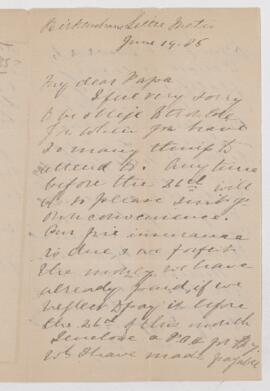 June 19. 85
My dear Papa
I feel very sorry
to
for when you have
so many things to
attend to. Any time
before the 26th will
do so please suit yr
own convenience.
Our fire insurance
is due, & we forfeit
the money we have
already paid if we
neglect to pay it before
the 26th of this month
I enclose a P.O.O. for
wh I have made payable